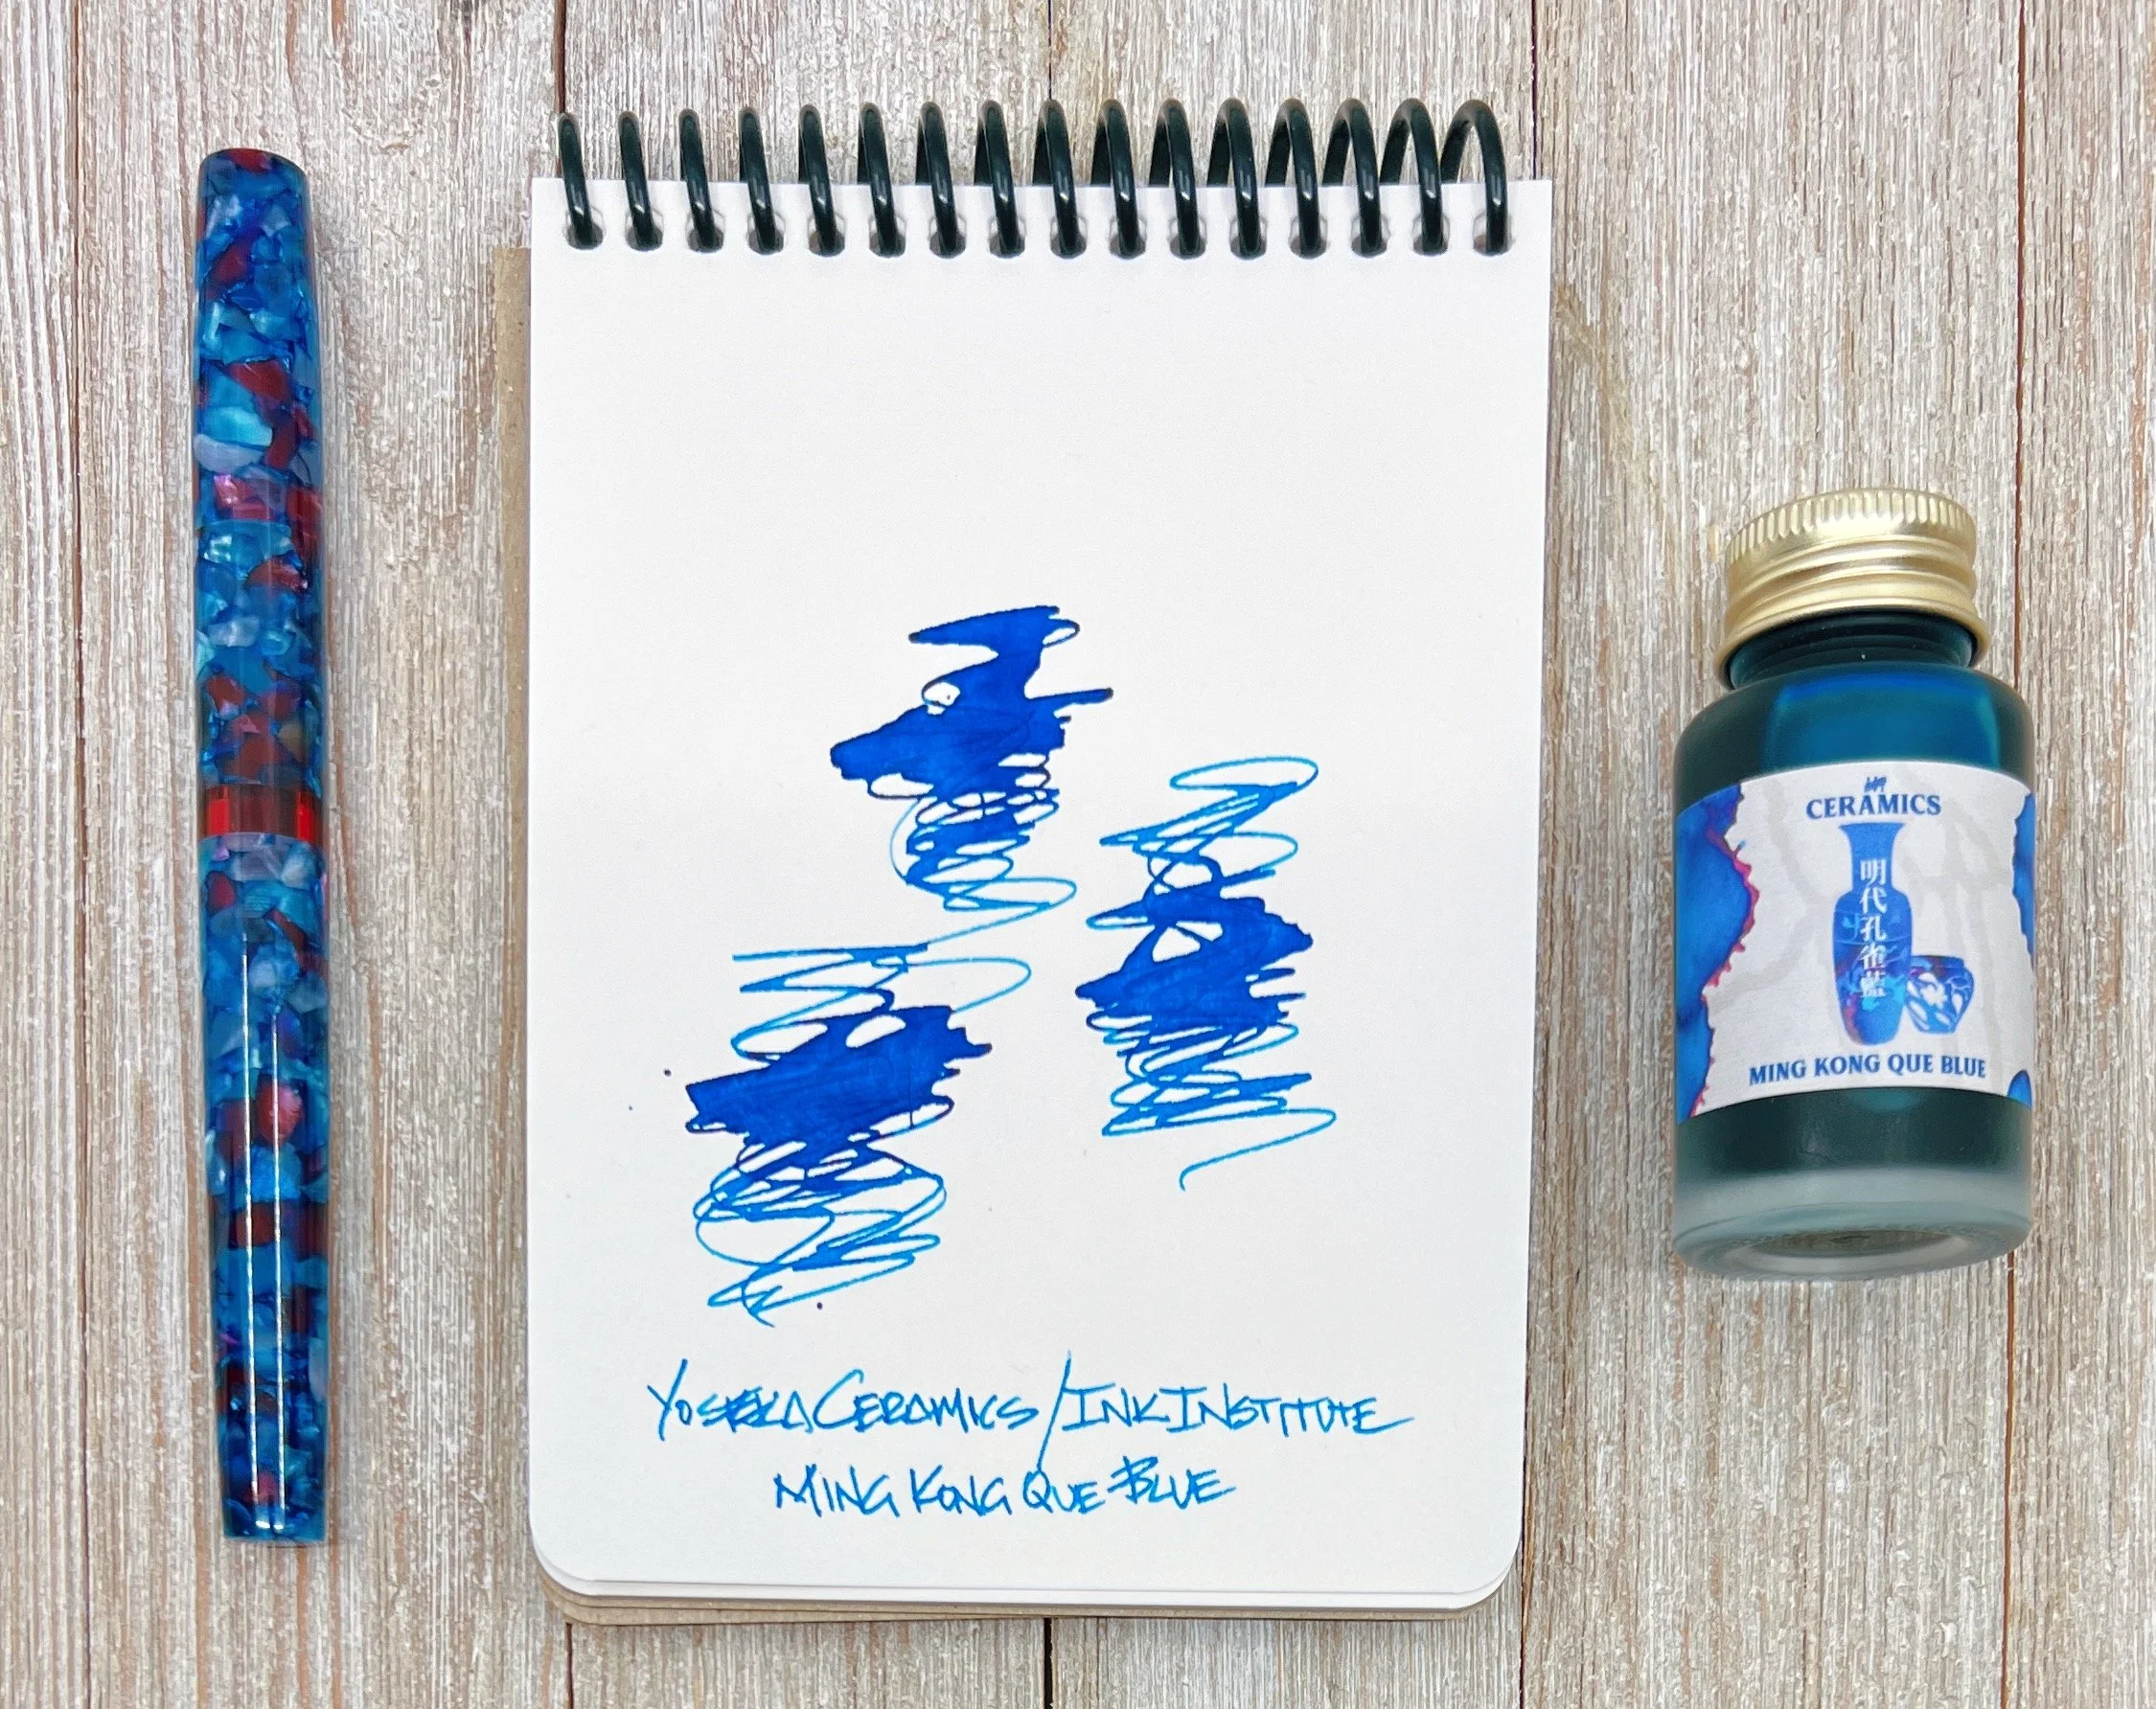 YOSEKA CERAMICS / INK INSTITUTE
MING KONG QUE BLUE
CERAMICS
明代孔雀藍
MING KONG QUE BLUE